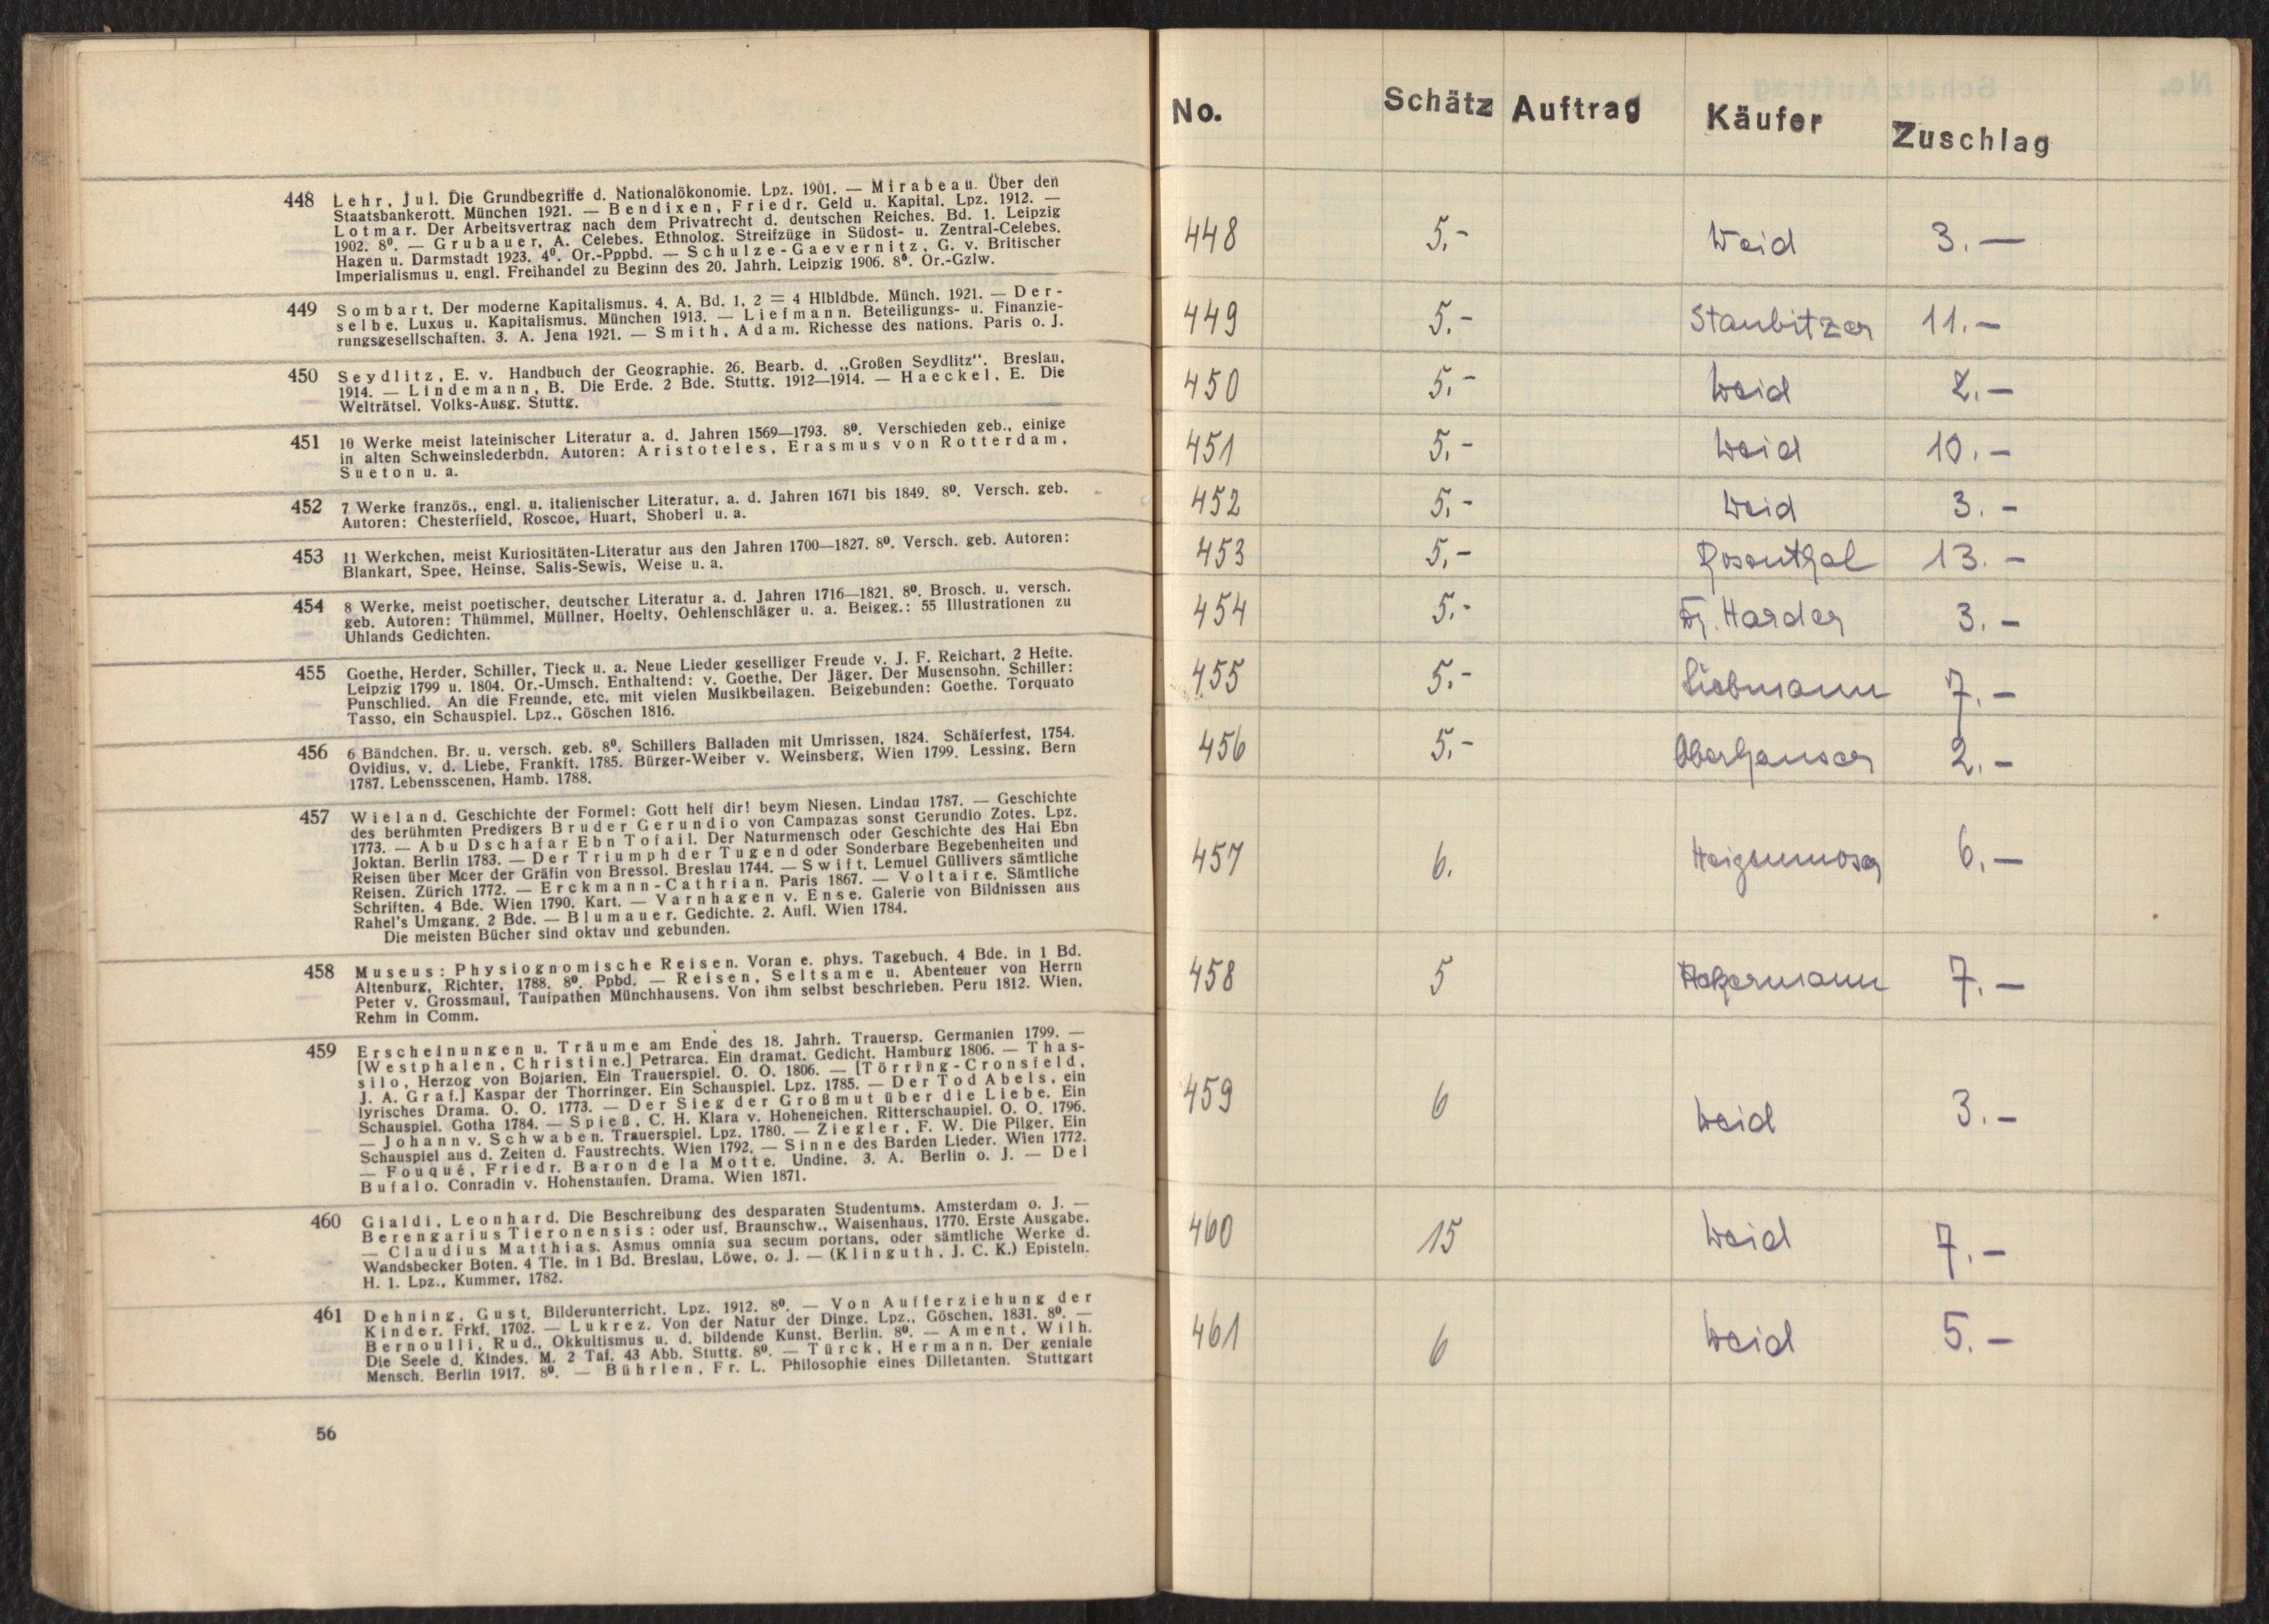 448 Lehr, Jul. Die Grundbegriffe d. Nationalökonomie. Lpz. 1901. — Mirabeau. Über den
Staatsbankerott. München 1921. — Bendixen, Friedr. Geld u. Kapital. Lpz. 1912. —
Lotmar. Der Arbeitsvertrag nach dem Privatrecht d. deutschen Reiches. Bd. 1. Leipzig
1902. 8⁰. — Grubauer, A. Celebes. Ethnolog. Streifzüge in Südost- u. Zentral-Celebes.
Hagen u. Darmstadt 1923. 4⁰. Or.-Pppbd. — Schulze-Gaevernitz, G. v. Britischer
Imperialismus u. engl. Freihandel zu Beginn des 20. Jahrh. Leipzig 1906. 8⁰. Or.-Gzlw.
449 Sombart. Der moderne Kapitalismus. 4. A. Bd. 1, 2 = 4 Hlbldbde. Münch. 1921. — Der-
selbe. Luxus u. Kapitalismus. München 1913. — Liefmann. Beteiligungs- u. Finanzie-
rungsgesellschaften. 3. A. Jena 1921. — Smith, Adam. Richesse des nations. Paris o. J.
450 Seydlitz, E. v. Handbuch der Geographie. 26. Bearb. d. „Großen Seydlitz“. Breslau,
1914. — Lindemann, B. Die Erde. 2 Bde. Stuttg. 1912—1914. — Haeckel, E. Die
Welträtsel. Volks-Ausg. Stuttg.
451 10 Werke meist lateinischer Literatur a. d. Jahren 1569—1793. 8⁰. Verschieden geb., einige
in alten Schweinslederbdn. Autoren: Aristoteles, Erasmus von Rotterdam,
Sueton u. a.
452 7 Werke französ., engl. u. italienischer Literatur, a. d. Jahren 1671 bis 1849. 8⁰. Versch. geb.
Autoren: Chesterfield, Roscoe, Huart, Shoberl u. a.
453 11 Werkchen, meist Kuriositäten-Literatur aus den Jahren 1700—1827. 8⁰. Versch. geb. Autoren:
Blankart, Spee, Heinse, Salis-Sewis, Weise u. a.
454 8 Werke, meist poetischer, deutscher Literatur a. d. Jahren 1716—1821. 8⁰. Brosch. u. versch.
geb. Autoren: Thümmel, Müllner, Hoelty, Oehlenschläger u. a. Beigeg.: 55 Illustrationen zu
Uhlands Gedichten.
455 Goethe, Herder, Schiller, Tieck u. a. Neue Lieder geselliger Freude v. J. F. Reichart. 2 Hefte.
Leipzig 1799 u. 1804. Or.-Umsch. Enthaltend: v. Goethe, Der Jäger. Der Musensohn. Schiller:
Punschlied. An die Freunde, etc. mit vielen Musikbeilagen. Beigebunden: Goethe. Torquato
Tasso, ein Schauspiel. Lpz., Göschen 1816.
456 6 Bändchen. Br. u. versch. geb. 8⁰. Schillers Balladen mit Umrissen, 1824. Schäferfest, 1754.
Ovidius, v. d. Liebe, Frankft. 1785. Bürger-Weiber v. Weinsberg, Wien 1799. Lessing, Bern
1787. Lebensscenen, Hamb. 1788.
457 Wieland. Geschichte der Formel: Gott helf dir! beym Niesen. Lindau 1787. — Geschichte
des berühmten Predigers Bruder Gerundio von Campazas sonst Gerundio Zotes. Lpz.
1773. — Abu Dschafar Ebn Tofail. Der Naturmensch oder Geschichte des Hai Ebn
Joktan. Berlin 1783. — Der Triumph der Tugend oder Sonderbare Begebenheiten und
Reisen über Meer der Gräfin von Bressol. Breslau 1744. — Swift. Lemuel Güllivers sämtliche
Reisen. Zürich 1772. — Erckmann-Cathrian. Paris 1867. — Voltaire. Sämtliche
Schriften. 4 Bde. Wien 1790. Kart. — Varnhagen v. Ense. Galerie von Bildnissen aus
Rahel's Umgang. 2 Bde. — Blumauer. Gedichte. 2. Aufl. Wien 1784.
Die meisten Bücher sind oktav und gebunden.
458 Museus: Physiognomische Reisen. Voran e. phys. Tagebuch. 4 Bde. in 1 Bd.
Altenburg, Richter, 1788. 8⁰. Ppbd. — Reisen, Seltsame u. Abenteuer von Herrn
Peter v. Grossmaul, Taufpathen Münchhausens. Von ihm selbst beschrieben. Peru 1812. Wien,
Rehm in Comm.
459 Erscheinungen u. Träume am Ende des 18. Jahrh. Trauersp. Germanien 1799. —
[Westphalen, Christine.] Petrarca. Ein dramat. Gedicht. Hamburg 1806. — Thas-
silo, Herzog von Bojarien. Ein Trauerspiel. O. O. 1806. — [Törring-Cronsfeld,
J. A. Graf.] Kaspar der Thorringer. Ein Schauspiel. Lpz. 1785. — Der Tod Abels, ein
lyrisches Drama. O. O. 1773. — Der Sieg der Großmut über die Liebe. Ein
Schauspiel. Gotha 1784. — Spieß, C. H. Klara v. Hoheneichen. Ritterschaupiel. O. O. 1796.
— Johann v. Schwaben. Trauerspiel. Lpz. 1780. — Ziegler, F. W. Die Pilger. Ein
Schauspiel aus d. Zeiten d. Faustrechts. Wien 1792. — Sinne des Barden Lieder. Wien 1772.
— Fouqué, Friedr. Baron de la Motte. Undine. 3. A. Berlin o. J. — Del
Bufalo. Conradin v. Hohenstaufen. Drama. Wien 1871.
460 Gialdi, Leonhard. Die Beschreibung des desparaten Studentums. Amsterdam o. J. —
Berengarius Tieronensis: oder usf. Braunschw., Waisenhaus, 1770. Erste Ausgabe.
— Claudius Matthias. Asmus omnia sua secum portans, oder sämtliche Werke d.
Wandsbecker Boten. 4 Tle. in 1 Bd. Breslau, Löwe, o. J. — (Klinguth, J. C. K.) Episteln.
H. 1. Lpz., Kummer, 1782.
461 Dehning, Gust. Bilderunterricht. Lpz. 1912. 8⁰. — Von Aufferziehung der
Kinder. Frkf. 1702. — Lukrez. Von der Natur der Dinge. Lpz., Göschen, 1831. 8⁰. —
Bernoulli, Rud., Okkultismus u. d. bildende Kunst. Berlin. 8⁰. — Ament, Wilh.
Die Seele d. Kindes. M. 2 Taf. 43 Abb. Stuttg. 8⁰. — Türck, Hermann. Der geniale
Mensch. Berlin 1917. 8⁰. — Bührlen, Fr. L. Philosophie eines Dilletanten. Stuttgart
56
No. Schätz Auftrag Käufer Zuschlag
448 5.- Weid 3.—
449 5.- Staubitzer 11.—
450 5.- Weid 2.—
451 5.- Weid 10.—
452 5.- Weid 3.-
453 5.- Rosenthal 13.-
454 5.- Fr. Harder 3.-
455 5.- Liebmann 7.-
456 5.- Oberhauser 2.-
457 6. 6.—
458 5 7.—
459 6 Weid 3.-
460 15 Weid 7.-
461 6 Weid 5.-